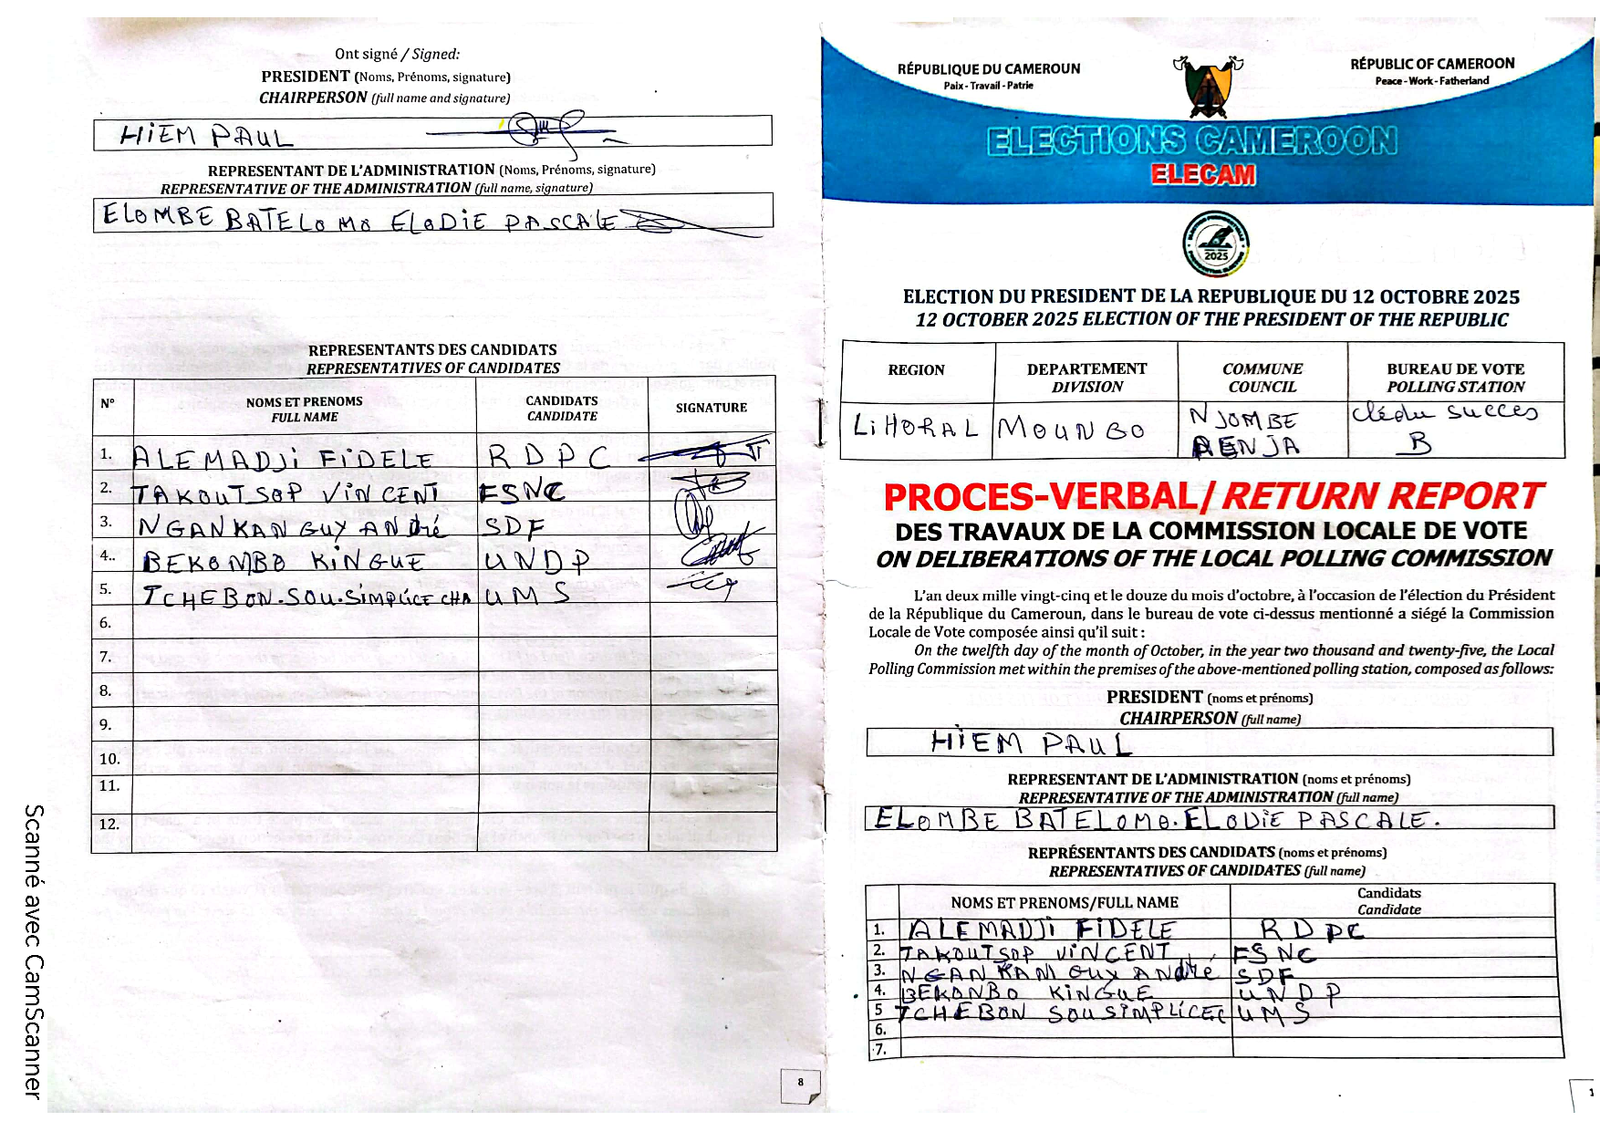 Ont signé / Signed:
PRESIDENT (Noms, Prénoms, signature)
CHAIRPERSON (full name and signature)
HIEM PAUL
REPRESENTANT DE L'ADMINISTRATION (Noms, Prénoms, signature)
REPRESENTATIVE OF THE ADMINISTRATION (full name, signature)
ELOMBE BATELOMO ELODIE PASCALE
REPRESENTANTS DES CANDIDATS
REPRESENTATIVES OF CANDIDATES
N° NOMS ET PRENOMS FULL NAME CANDIDATS CANDIDATE SIGNATURE
1. ALEMADJI FIDELE RDPC
2. TAKOUTSOP VINCENT FSNC
3. NGANKAN GUY ANDré SDF
4.. BEKOMBO KINGUE UNDP
5. TCHEBON.SOU.SIMPLICE CHA UMS
6.
7.
8.
9.
10.
11.
12.
8
Scanné avec CamScanner
RÉPUBLIQUE DU CAMEROUN
Paix - Travail - Patrie
RÉPUBLIC OF CAMEROON
Peace - Work - Fatherland
ELECTIONS CAMEROON
ELECAM
2025
ELECTION DU PRESIDENT DE LA REPUBLIQUE DU 12 OCTOBRE 2025
12 OCTOBER 2025 ELECTION OF THE PRESIDENT OF THE REPUBLIC
REGION DEPARTEMENT DIVISION COMMUNE COUNCIL BUREAU DE VOTE POLLING STATION
LiHORAL MOUNGO NJOMBE PENJA Clédu succes B
PROCES-VERBAL/ RETURN REPORT
DES TRAVAUX DE LA COMMISSION LOCALE DE VOTE
ON DELIBERATIONS OF THE LOCAL POLLING COMMISSION
L'an deux mille vingt-cinq et le douze du mois d'octobre, à l'occasion de l'élection du Président
de la République du Cameroun, dans le bureau de vote ci-dessus mentionné a siégé la Commission
Locale de Vote composée ainsi qu'il suit :
On the twelfth day of the month of October, in the year two thousand and twenty-five, the Local
Polling Commission met within the premises of the above-mentioned polling station, composed as follows:
PRESIDENT (noms et prénoms)
CHAIRPERSON (full name)
HIEM PAUL
REPRESENTANT DE L'ADMINISTRATION (noms et prénoms)
REPRESENTATIVE OF THE ADMINISTRATION (full name)
ELOMBE BATELOMO.ELODIE PASCALE.
REPRÉSENTANTS DES CANDIDATS (noms et prénoms)
REPRESENTATIVES OF CANDIDATES (full name)
NOMS ET PRENOMS/FULL NAME Candidats Candidate
1. ALEMADJI FIDELE RDPC
2. TAKOUTSOP VINCENT FSNC
3. NGANKAN GUY ANDré SDF
4. BEKONBO KINGUE UNDP
5 TCHEBON SOUSIMPLICEC UMS
6.
7.
1